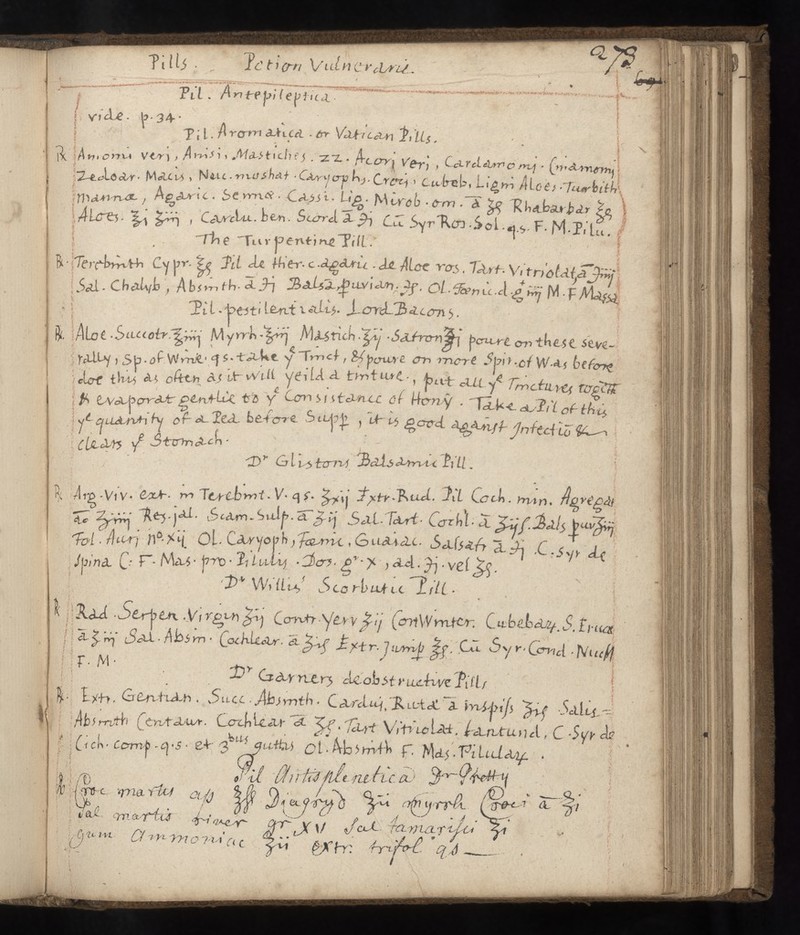 Pills. Potion Vulnerarie. 273
Pil. Antepileptica
vide. p. 34.
Pil. Aromatica. or Vatican Pills.
℞ Amomi veri, Anisi, Mastiches. zz. Acori veri, Cardamomj. Cinamomj
Zedoar. Macis, Nuc. moshat. Caryoph. Crocj. Cubeb. Ligni Aloes. Turbith
manna, Agaric. Senna. Cassi. Lig. Mirob. om. ā ʒß Rhabarbar ℥ß
Aloes. ℥j ʒiij, Cardu. ben. Scord ā ℈j Cū Syr Ros. Sol. q.s. F. M. Pilu.
The Turpentine Pill.
℞ Terebinth Cypr. ℥ß Pil de Hier. c. agaric. de Aloe ros. Tart. Vitriolat, ā ℈iiij
Sal. Chalyb, Absinth. ā ℈j Balsā. ꝑuvian. ℈ß. Ol. Fœnic. d. gt iiij M. F Massa
Pil. pestilentialis. Lord Bacons.
℞ Aloe. Succotr. ℥iiij Myrrh. ℥iij Mastich. ℥ij. Safron ℥j poure on these seve-
rally, Sp. of Wine. q s. take ye Tinct, & poure on more Spir. of W. as before
doe this as often as it will yeild a tinture., put all ye Tinctures togeth
& evaporat gentlie to ye Consistance of Hony. Take a Pil of this
ye quantity of a Pea before Supp, it is good against Infectiō &
clears ye Stomach.
Dr Glistons Balsamic Pill.
℞ Arg. Viv. ext. in Terebint. V. q s. ʒxij Extr. Rud. Pil Coch. min. Agregat
ʒiiij Res. jal. Scam. Sulp. ā ʒij Sal. Tart. Cochl. ā ʒijß. Bals ꝑuv ʒiij
Fol. Aurj no. xij Ol. Caryoph, Fœnic, Guaiac. Salsafr ā ℈j. C. Syr de
Spina C. F. Mas. pro. Pilulis. Dos. gr. x, ad. ℈j. vel ʒß.
Dr Willis' Scorbutic Pill.
℞ Rad. Serpen. Virgin ʒij Contr. Yerv ʒij Cort Winter. Cubebaꝝ. S. Eruca
ā ʒiij Sal. Absin. Cochlear. ā ʒiß Extr. Junip ℥ß. Cū Syr. Cond. Nuc M
F. M.
Dr Garners deobstructive Pills
℞ Extr. Gentian. Succ. Absinth. Cardui, Rutæ ā inspiss ʒiß Salis=
Absinth Centaur. Cochlear ā ʒß. Tart Vitriolat. tantund, C. Syr de
Cich. comp. q. s. et 3bus guttis Ol. Absinth F. Mas. Pilulaꝝ.
Pil Antisplenetica Dr Pretty
℞ Croc martis ap ℥ß Diagryd ʒii myrrh Croci ā ʒi
Sal martis river gr XV Sal tamarisci ʒi
gum Ammoniac ʒii extr: trifol qs